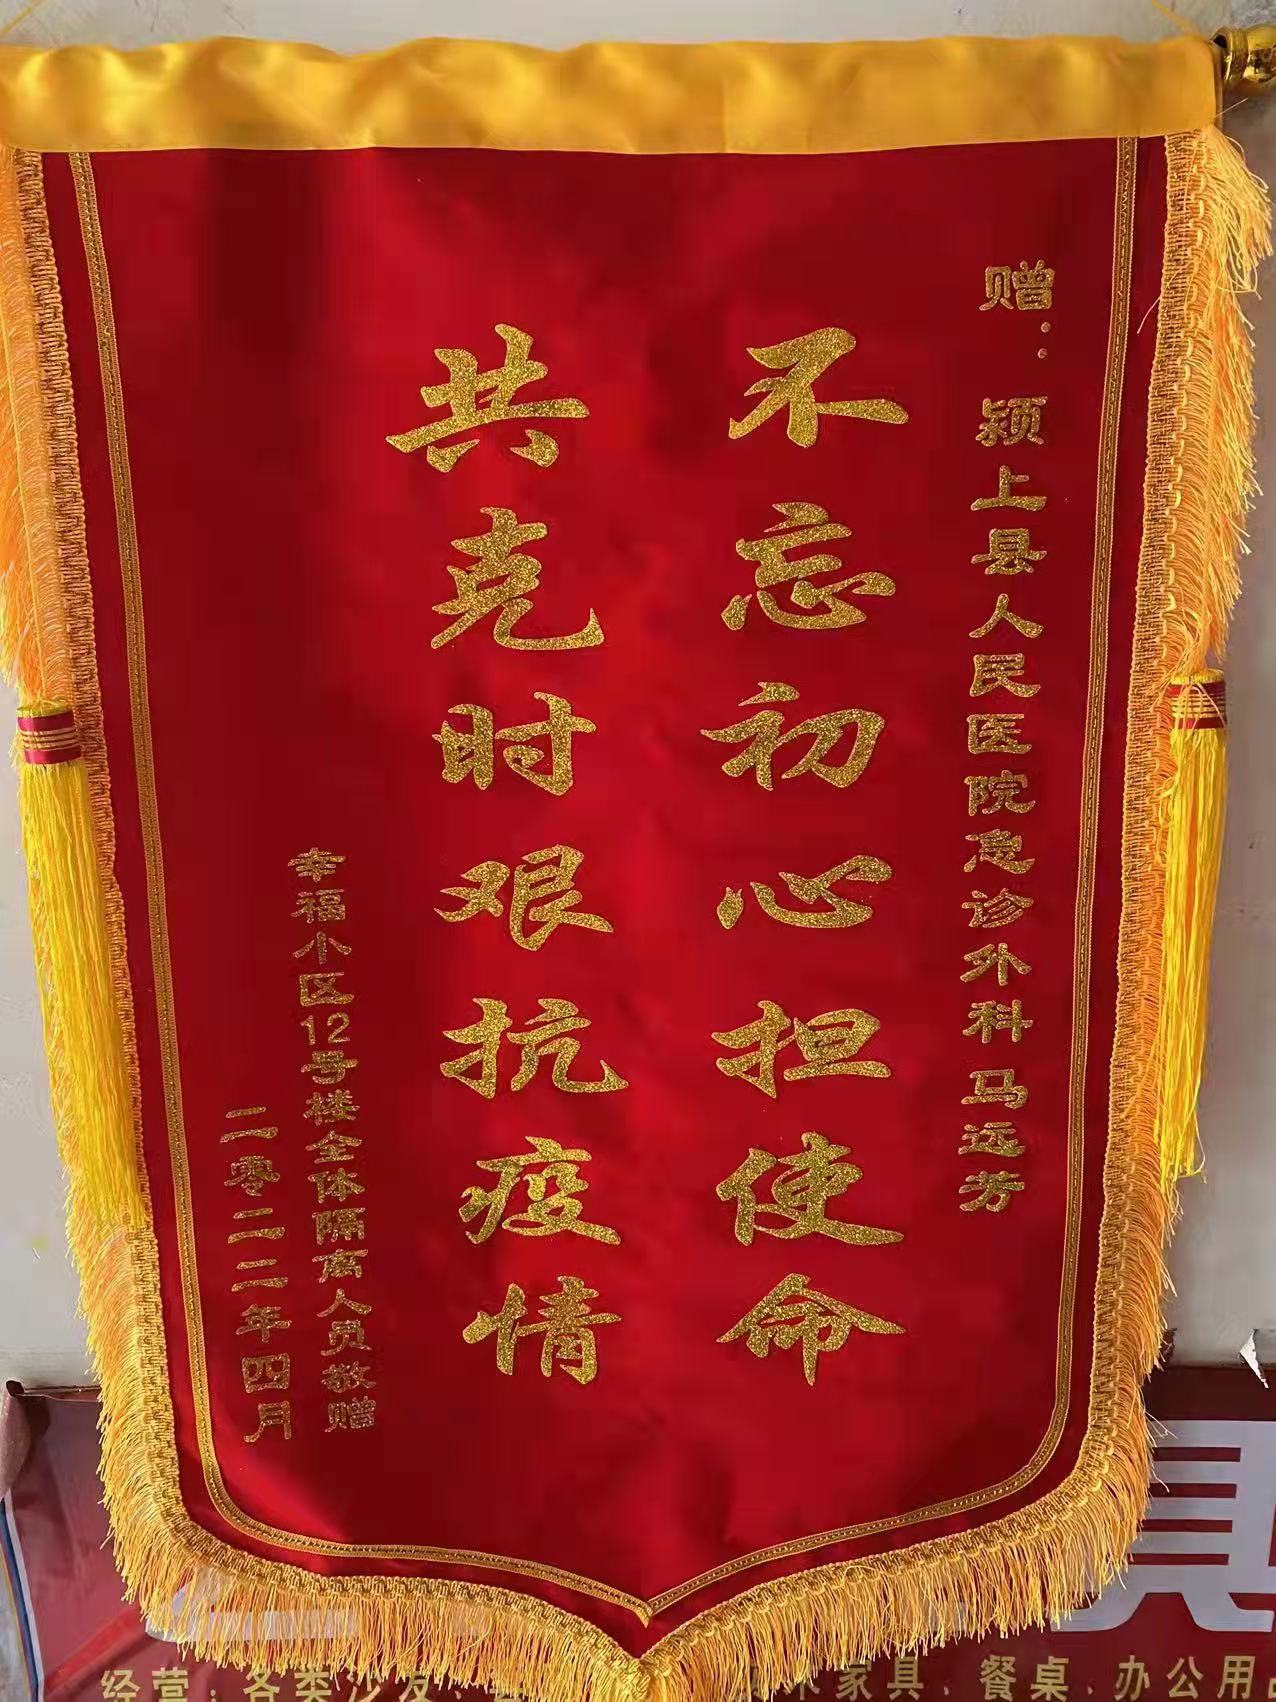 赠：颍上县人民医院急诊外科 马远芳
不忘初心担使命
共克时艰抗疫情
幸福小区12号楼全体隔离人员敬赠
二零二二年四月
经营：各类沙发、
木家具、餐桌、办公用